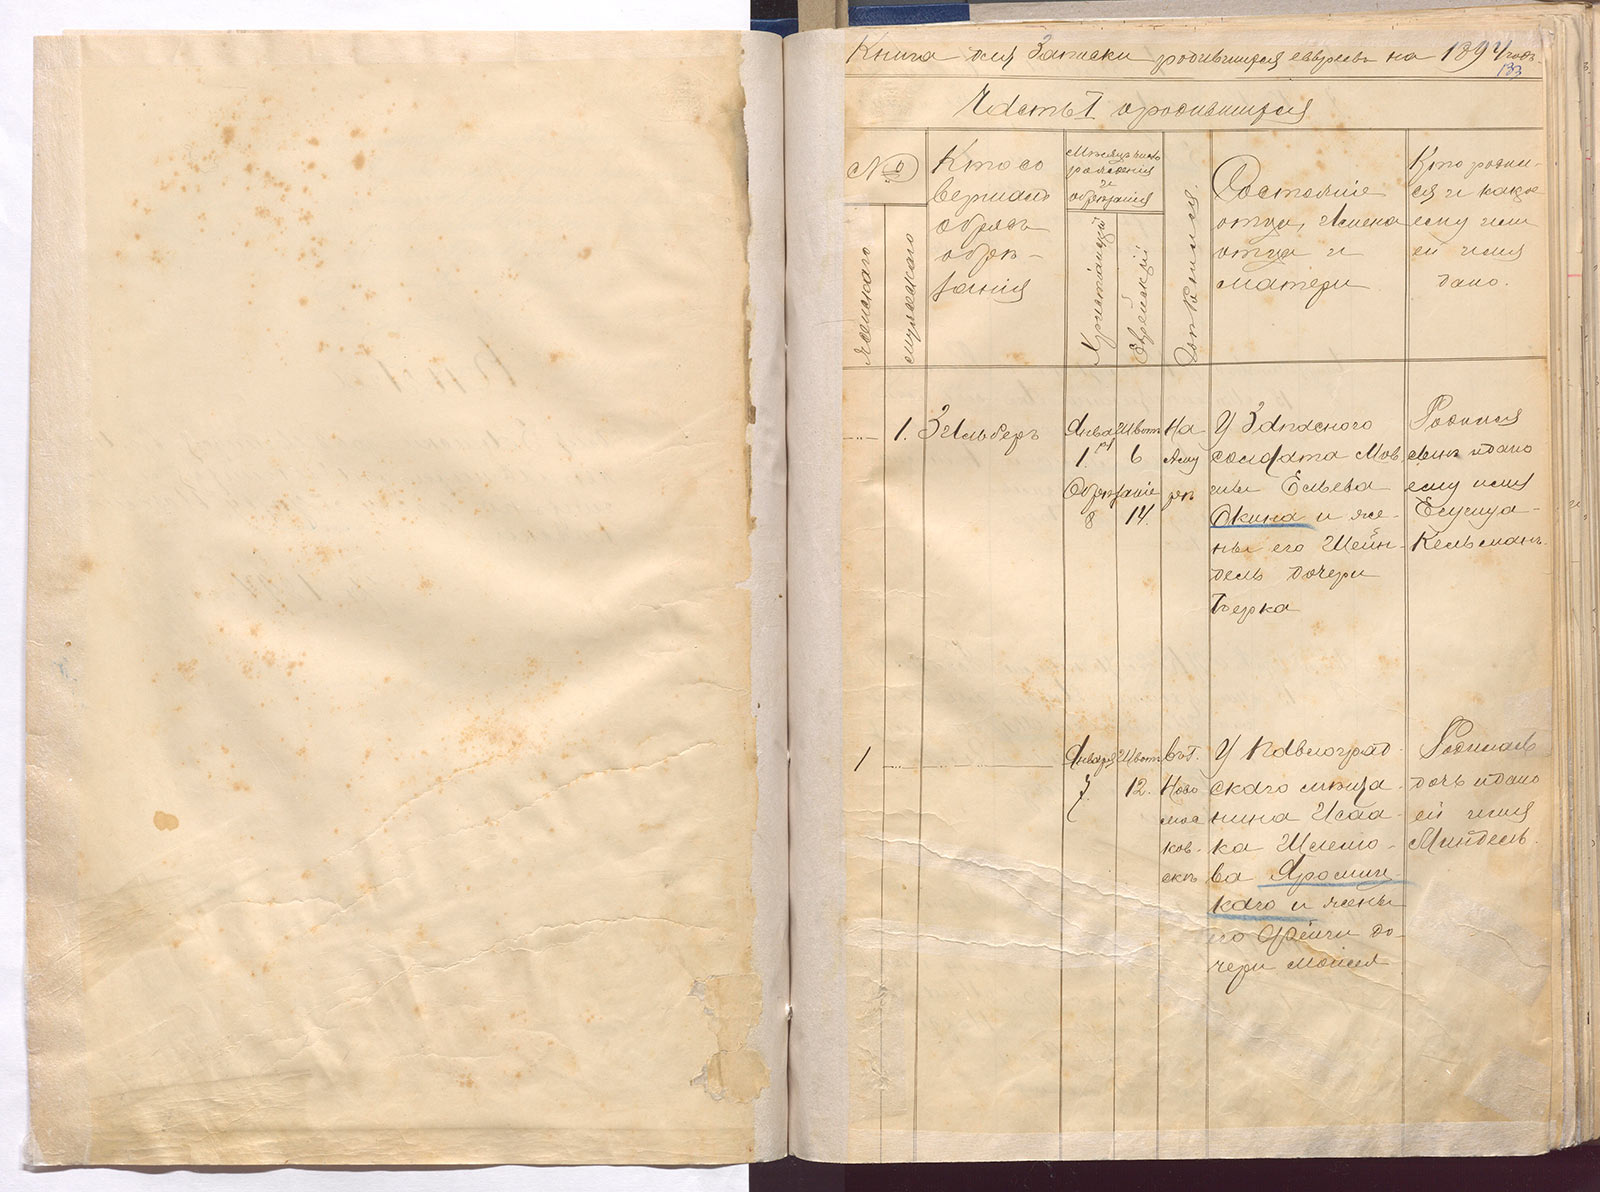 Книга для Записки родившихся евреевъ на 1894 годъ.
133
Часть I о родившихся
№
женскаго
мужескаго
Кто со
вершалъ
обрядъ
обрѣ-
занія
Мѣсяцъ число
рожденія
и
обрѣзанія
Христіанскій
Еврейскій
Гдѣ родился
Состояніе
отца, Имена
отца и
матери
Кто родил-
ся и какое
ему или
ей имя
дано.
1.
Зильберъ
Января
1.
Шватъ
6
Обрѣзаніе
8
14.
На
У Запасного
солдата Мов
ши Ельева
Окина и же-
ны его Шейн-
дель дочери
Берка
Родился
сынъ и дано
ему имя
Есугиуа-
Кельманъ.
1
Января
7.
Шватъ
12.
въ г.
Ново
мос
ков-
скѣ
У Павлоград-
скаго мѣща-
нина Исаа-
ка Шлемо-
ва Яромин-
каго и жены
его Фейги до-
чери Моисея
Родилась
дочь и дано
ей имя
Миндель.